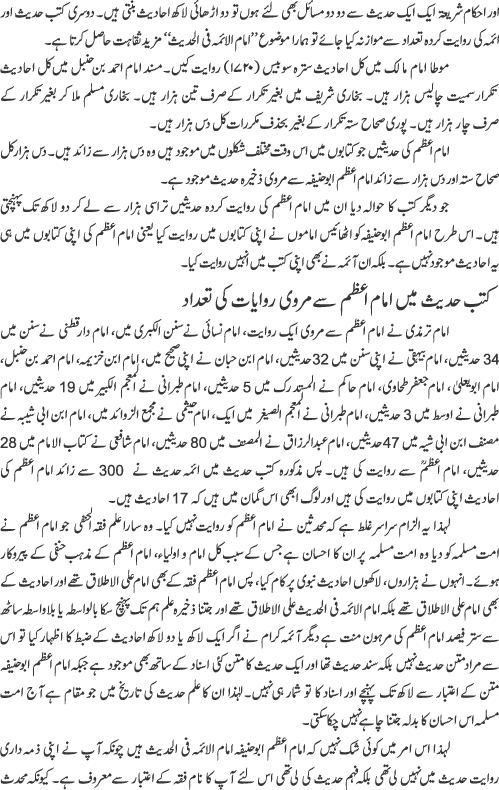 اور احکام شریعۃ ایک ایک حدیث سے دو دو مسائل بھی لئے ہوں تو دو اڑھائی لاکھ احادیث بنتی ہیں۔ دوسری کتب حدیث اور
ائمہ کی روایت کردہ تعداد سے موازنہ کیا جائے تو ہمارا موضوع ’’امام الائمہ فی الحدیث‘‘ مزید ثقاہت حاصل کرتا ہے۔
موطا امام مالک میں کل احادیث سترہ سو بیس (۱۷۲۰) روایت کیں۔ مسند امام احمد بن حنبل میں کل احادیث
تکرار سمیت چالیس ہزار ہیں۔ بخاری شریف میں بغیر تکرار کے صرف تین ہزار ہیں۔ بخاری مسلم ملا کر بغیر تکرار کے
صرف چار ہزار ہیں۔ پوری صحاح ستہ تکرار کے بغیر بحذف مکررات کل دس ہزار ہیں۔
امام اعظم کی حدیثیں جو کتابوں میں اس وقت مختلف شکلوں میں موجود ہیں وہ دس ہزار سے زائد ہیں۔ دس ہزار کل
صحاح ستہ اور دس ہزار سے زائد امام اعظم ابوحنیفہ سے مروی ذخیرہ حدیث موجود ہے۔
جو دیگر کتب کا حوالہ دیا ان میں امام اعظم کی روایت کردہ حدیثیں تراسی ہزار سے لے کر دو لاکھ تک پہنچتی
ہیں۔ اس طرح امام اعظم ابوحنیفہ کو اٹھائیس اماموں نے اپنی کتابوں میں روایت کیا یعنی امام اعظم کی اپنی کتابوں میں ہی
یہ احادیث موجود نہیں ہے۔ بلکہ ان آئمہ نے بھی اپنی کتب میں انہیں روایت کیا۔
کتب حدیث میں امام اعظم سے مروی روایات کی تعداد
امام ترمذی نے امام اعظم سے مروی ایک روایت، امام نسائی نے سنن الکبری میں، امام دار قطنی نے سنن میں
34 حدیثیں، امام بیہقی نے اپنی سنن میں 32 حدیثیں، امام ابن حبان نے اپنی صحیح میں، امام ابن خزیمہ، امام احمد بن حنبل،
امام ابویعلیٰ، امام جعفر طحاوی، امام حاکم نے المستدرک میں 5 حدیثیں، امام طبرانی نے المعجم الکبیر میں 19 حدیثیں، امام
طبرانی نے اوسط میں 3 حدیثیں، امام طبرانی نے المعجم الصغیر میں ایک، امام ہیثمی نے مجمع الزوائد میں، امام ابن ابی شیبہ نے
مصنف ابن ابی شیبہ میں 47 حدیثیں، امام عبدالرزاق نے المصنف میں 80 حدیثیں، امام شافعی نے کتاب الامام میں 28
حدیثیں، امام اعظمؒ سے روایت کی ہیں۔ پس مذکورہ کتب حدیث میں ائمہ حدیث نے 300 سے زائد امام اعظم کی
احادیث اپنی کتابوں میں روایت کی ہیں اور لوگ ابھی اس گمان میں ہیں کہ 17 احادیث ہیں۔
لہذا یہ الزام سراسر غلط ہے کہ محدثین نے امام اعظم کو روایت نہیں کیا۔ وہ سارا علم فقہ الحنفی جو امام اعظم نے
امت مسلمہ کو دیا وہ امت مسلمہ پر ان کا احسان ہے جس کے سبب کل امام و اولیاء، امام اعظم کے مذہب حنفی کے پیروکار
ہوئے۔ انہوں نے ہزاروں، لاکھوں احادیث نبوی پر کام کیا، پس امام اعظم فقہ کے بھی امام علی الاطلاق تھے اور احادیث کے
بھی امام علی الاطلاق تھے بلکہ امام الائمہ فی الحدیث علی الاطلاق تھے اور جتنا ذخیرہ علم ہم تک پہنچ سکا بالواسطہ یا بلاواسطہ ساٹھ
سے ستر فیصد امام اعظم کی مرہون منت ہے دیگر آئمہ کرام نے اگر ایک لاکھ یا دو لاکھ احادیث کے ضبط کا اظہار کیا تو اس
سے مراد متن حدیث نہیں بلکہ سند حدیث تھا اور ایک حدیث کا متن کئی اسناد کے ساتھ بھی موجود ہے جبکہ امام اعظم ابوحنیفہ
متن کے اعتبار سے لاکھ تک پہنچے اور اسناد کا تو شمار ہی نہیں۔ لہذا ان کا علم حدیث کی تاریخ میں جو مقام ہے آج امت
مسلمہ اس احسان کا بدلہ جتنا چاہے نہیں چکا سکتی۔
لہذا اس امر میں کوئی شک نہیں کہ امام اعظم ابوحنیفہ امام الائمہ فی الحدیث ہیں چونکہ آپ نے اپنی ذمہ داری
روایت حدیث میں نہیں لی تھی بلکہ فہم حدیث کی لی تھی اس لئے آپ کا نام فقہ کے اعتبار سے معروف ہے۔ کیونکہ محدث